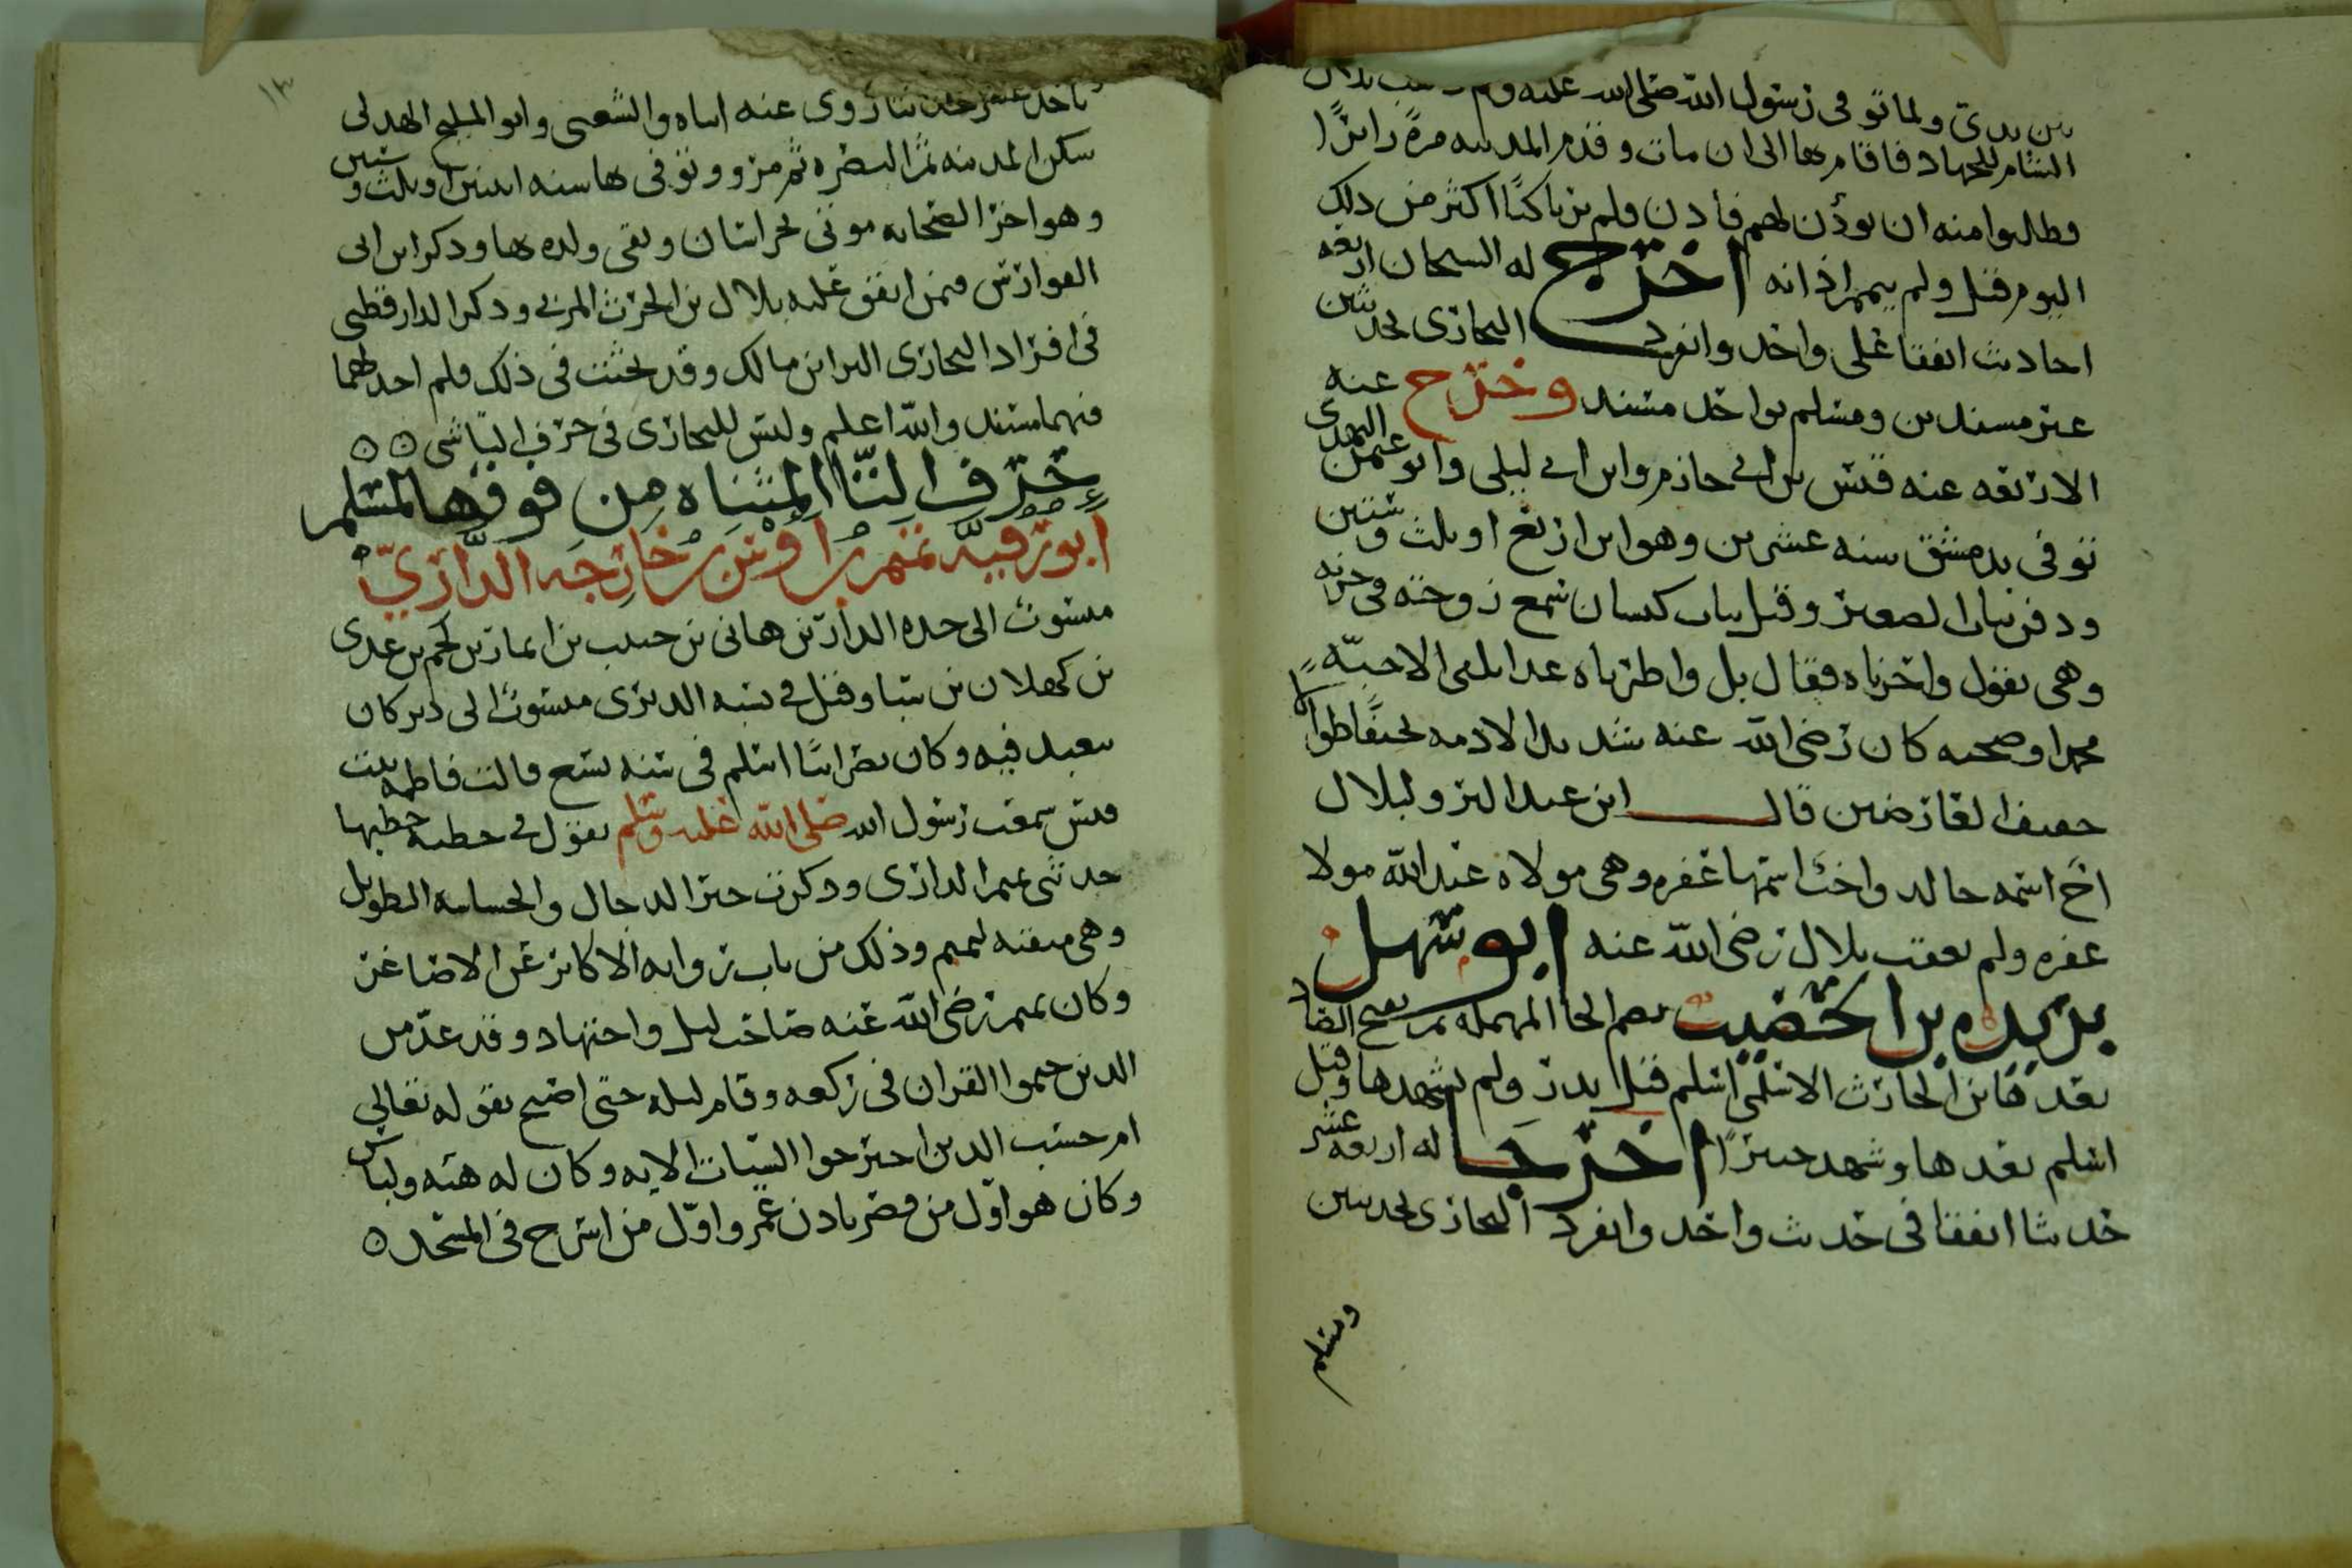 بين يدي ولما توفي رسول الله صلى الله عليه وسلم بلال
الشام للجهاد فاقام بها الى ان مات وقدم المدينه مرة زائرًا
وطالبوا منه ان يوذن لهم فاذن فلم ير باكيًا اكثر من ذلك
اليوم وقيل ولم يتمم اذانه اخرج له الشيخان اربعه
احاديث اتفقا على واحد وانفرد البخاري بحديثين
غير مسندين ومسلم بواحد مسند وخرج عنه
الاربعه عنه قيس بن ابي حازم وابن ابي ليلى وابو عثمن النهدي
توفي بدمشق سنه عشرين وهو ابن اربع او ثلث وستين
ودفن بباب الصغير وقيل بباب كيسان سمع زوجته وحزنه
وهي تقول واحزناه فقال بل واطرباه غدا نلقى الاحبّه
محمدا وصحبه كان رضي الله عنه شديد الادمه نحيفًا طوالا
خفيف العارضين قال ابن عبد البر ولبلال
اخ اسمه خالد واخت اسمها غفره وهي مولاة عبد الله مولا
غفره ولم يعقب بلال رضي الله عنه ابو سهل
بريده بن الحصيب بضم الحا المهمله ثم بفتح الصاد
بعدها بن الحارث الاسلمي اسلم قبل بدر ولم يشهدها وقيل
اسلم بعدها وشهد خيبرًا اخرجا له اربعه عشر
حديثا اتفقا في حديث واحد وانفرد البخاري بحديثين
ومسلم
١٣
باحد عشر حديثا روى عنه ابناه والشعبي وابو المليح الهذلي
سكن المدينه ثم البصره ثم مرو وتوفي بها سنه اثنين او ثلث وستين
وهو اخر الصحابه موتى بخراسان وبقي ولده بها وذكر ابن ابي
الفوارس فيمن اتفق عليه بلال بن الحرث المزني وذكر الدارقطني
في افراد البخاري البرا بن مالك وقد بحثت في ذلك فلم اجد لهما
فيهما مسند والله اعلم وليس للبخاري في حرف التا شي ٥ ٥
حرف التا المثناه من فوقها لمسلم
ابو رقيه تميم بن اوس بن خارجه الداريّ
منسوب الى جده الدار بن هاني بن حبيب بن انمار بن لخم بن عدي
بن كهلان بن سبا وقيل في نسبه الديري منسوب الى دير كان
يتعبد فيه وكان نصرانيا اسلم في سنه تسع قالت فاطمه بنت
قيس سمعت رسول الله صلى الله عليه وسلم يقول في خطبه خطبها
حدثني تميم الداري وذكرت خبر الدجال والجساسه الطويل
وهي منقبه لتميم وذلك من باب روايه الاكابر عن الاصاغر
وكان تميم رضي الله عنه صاحب ليل واجتهاد وقد عدّ من
الذين ختموا القران في ركعه وقام ليله حتى اصبح بقوله تعالى
ام حسب الذين اجترحوا السيات الايه وكان له هيئه ولباس
وكان هو اوّل من قص باذن عمر واوّل من اسرج في المسجد ٥